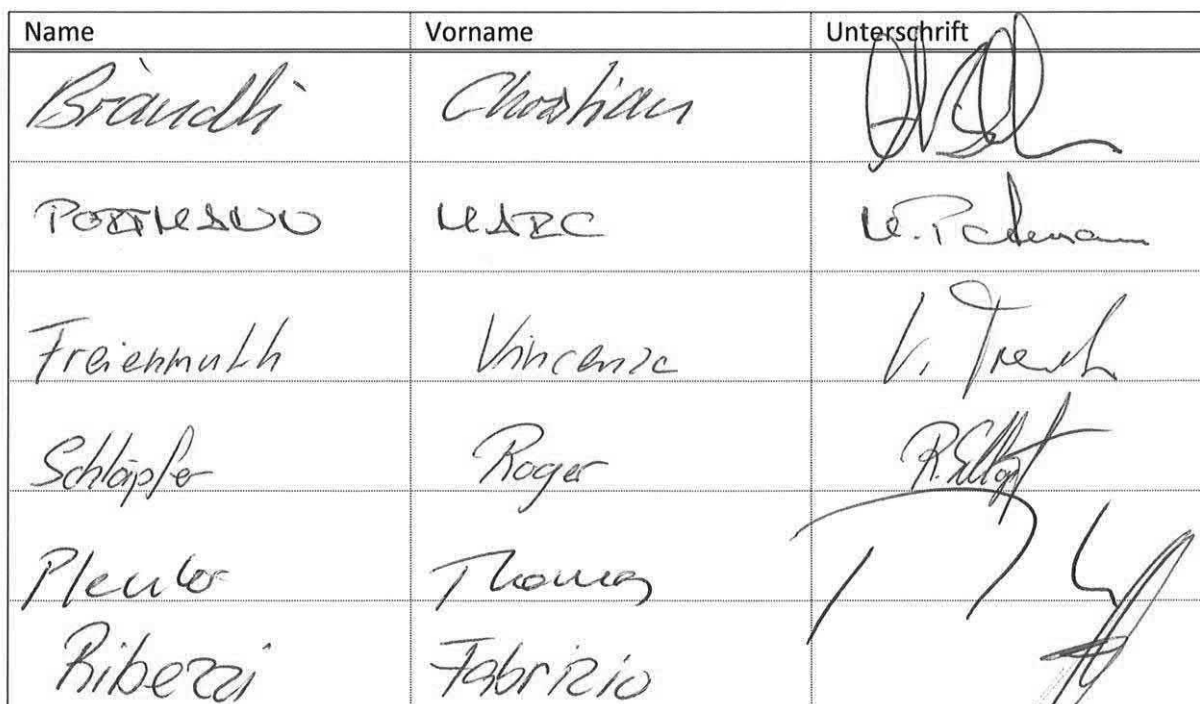 Name Vorname Unterschrift
Brändli Christian
PORTMANN MARC M. Portmann
Freienmuth Vincenza
Schläpfer Roger
Thomas
Ribezzi Fabrizio